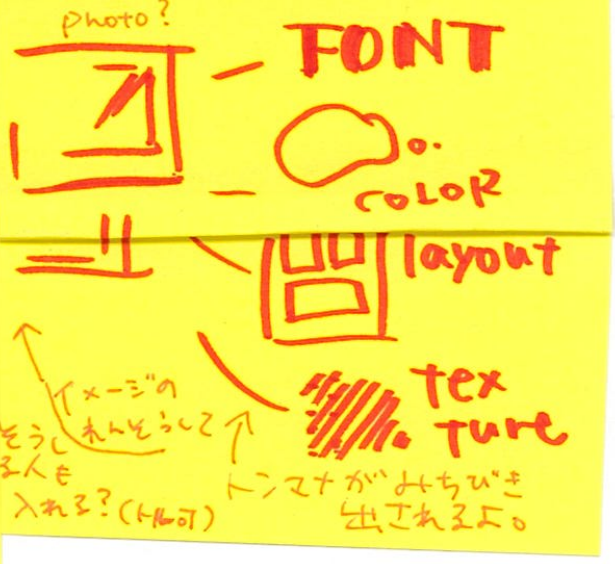 photo?
FONT
COLOR
layout
tex
ture
イメージの
れんそうして
そうし
る人も
入れる?
トンマナがみちびき
出されるよ。